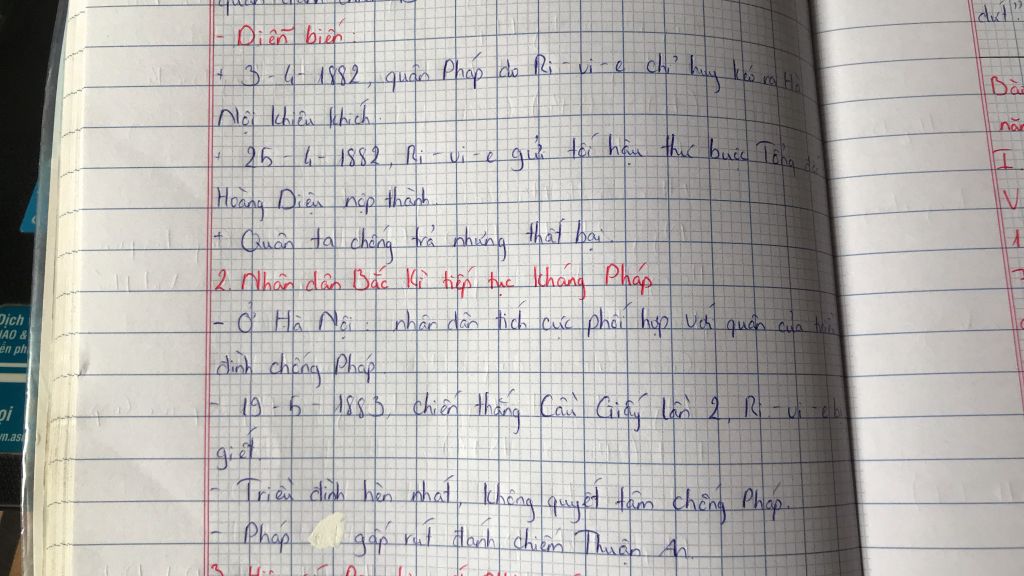 - Diễn biến:
+ 3-4-1882, quân Pháp do Ri-vi-e chỉ huy kéo ra Hà
Nội khiêu khích.
+ 25-4-1882, Ri-vi-e gửi tối hậu thư buộc Tổng đốc
Hoàng Diệu nộp thành.
+ Quân ta chống trả nhưng thất bại.
2. Nhân dân Bắc Kì tiếp tục kháng Pháp
- Ở Hà Nội: nhân dân tích cực phối hợp với quân của triều
đình chống Pháp
- 19-5-1883, chiến thắng Cầu Giấy lần 2, Ri-vi-e bị
giết.
- Triều đình hèn nhát, không quyết tâm chống Pháp.
- Pháp gấp rút đánh chiếm Thuận An.
Bài
năm
I
V
1
Dịch